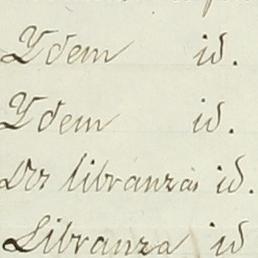 Ydem id.
Ydem id.
Dos libranzas id.
Libranza id